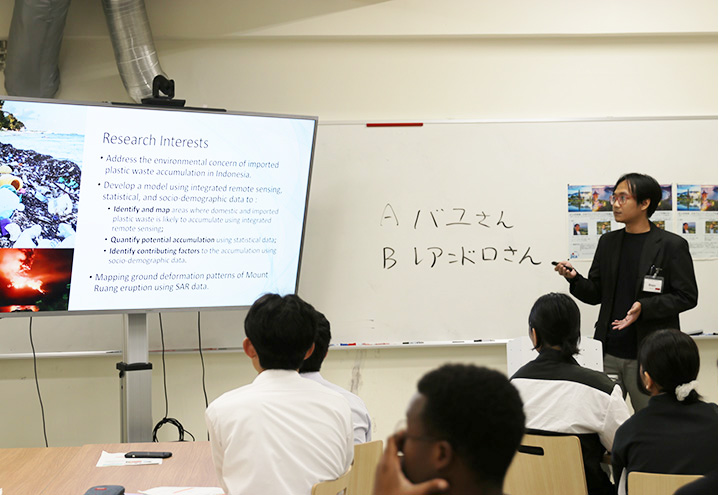 Research Interests
• Address the environmental concern of imported
plastic waste accumulation in Indonesia.
• Develop a model using integrated remote sensing,
statistical, and socio-demographic data to :
• Identify and map areas where domestic and imported
plastic waste is likely to accumulate using integrated
remote sensing;
• Quantify potential accumulation using statistical data;
• Identify contributing factors to the accumulation using
socio-demographic data.
• Mapping ground deformation patterns of Mount
Ruang eruption using SAR data.
A バユさん
B レアンドロさん